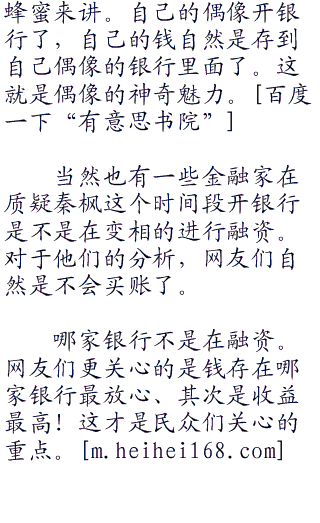 蜂蜜来讲。自己的偶像开银
行了，自己的钱自然是存到
自己偶像的银行里面了。这
就是偶像的神奇魅力。[百度
一下“有意思书院”]
当然也有一些金融家在
质疑秦枫这个时间段开银行
是不是在变相的进行融资。
对于他们的分析，网友们自
然是不会买账了。
哪家银行不是在融资。
网友们更关心的是钱存在哪
家银行最放心、其次是收益
最高！这才是民众们关心的
重点。[m.heihei168.com]